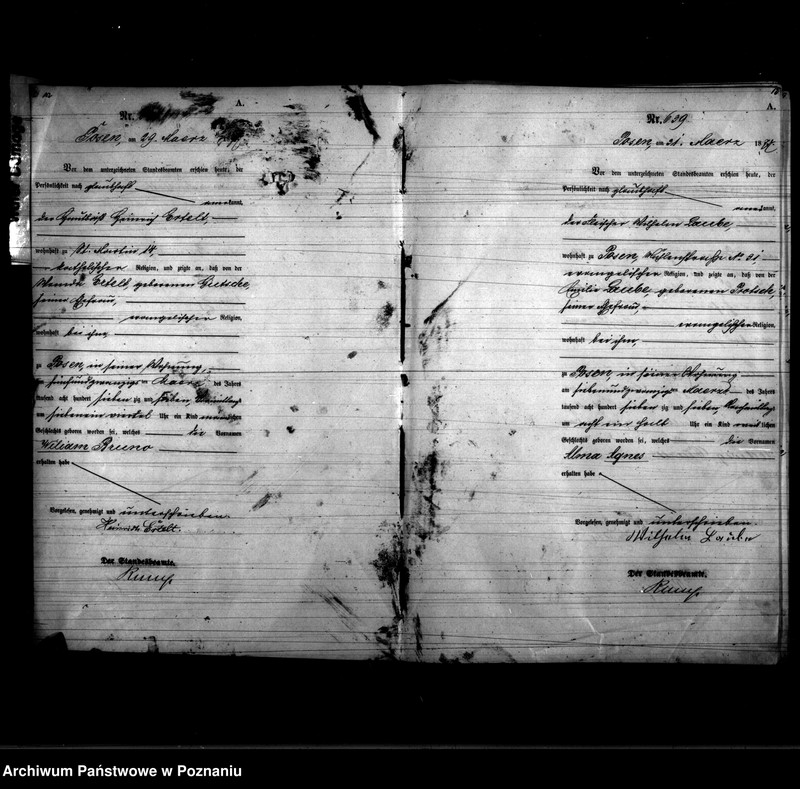 A.
Nr.
Posen, am 29. Maerz
Vor dem unterzeichneten Standesbeamten erschien heute, der
Persönlichkeit nach glaubhaft
anerkannt,
der Heinrich Ertelt,
wohnhaft zu St. Martin 14,
katholischer Religion, und zeigte an, daß von der
Wanda Ertelt, geborenen
seiner Ehefrau,
evangelischer Religion,
wohnhaft bei ihm,
zu Posen, in seiner Wohnung,
am fünfundzwanzigsten Maerz des Jahres
tausend acht hundert sieben zig und sieben
um sieben ein viertel Uhr ein Kind maennlichen
Geschlechts geboren worden sei, welches die Vornamen
Wiliam Bruno
erhalten habe
Vorgelesen, genehmigt und unterschrieben.
Heinrich Ertelt.
Der Standesbeamte.
A.
Nr. 639
Posen, am 31. Maerz 1877
Vor dem unterzeichneten Standesbeamten erschien heute, der
Persönlichkeit nach glaubhaft
anerkannt,
der Wilhelm Laube,
wohnhaft zu Posen, No 31
evangelischer Religion, und zeigte an, daß von der
Emilie Laube, geborenen
seiner Ehefrau,
evangelischer Religion,
wohnhaft bei ihm,
zu Posen, in seiner Wohnung
am siebenundzwanzigsten Maerz des Jahres
tausend acht hundert sieben zig und sieben, Nachmittags
um acht ein halb Uhr ein Kind weiblichen
Geschlechts geboren worden sei, welches die Vornamen
Alma Agnes
erhalten habe
Vorgelesen, genehmigt und unterschrieben.
Wilhelm Laube
Der Standesbeamte.
Archiwum Państwowe w Poznaniu